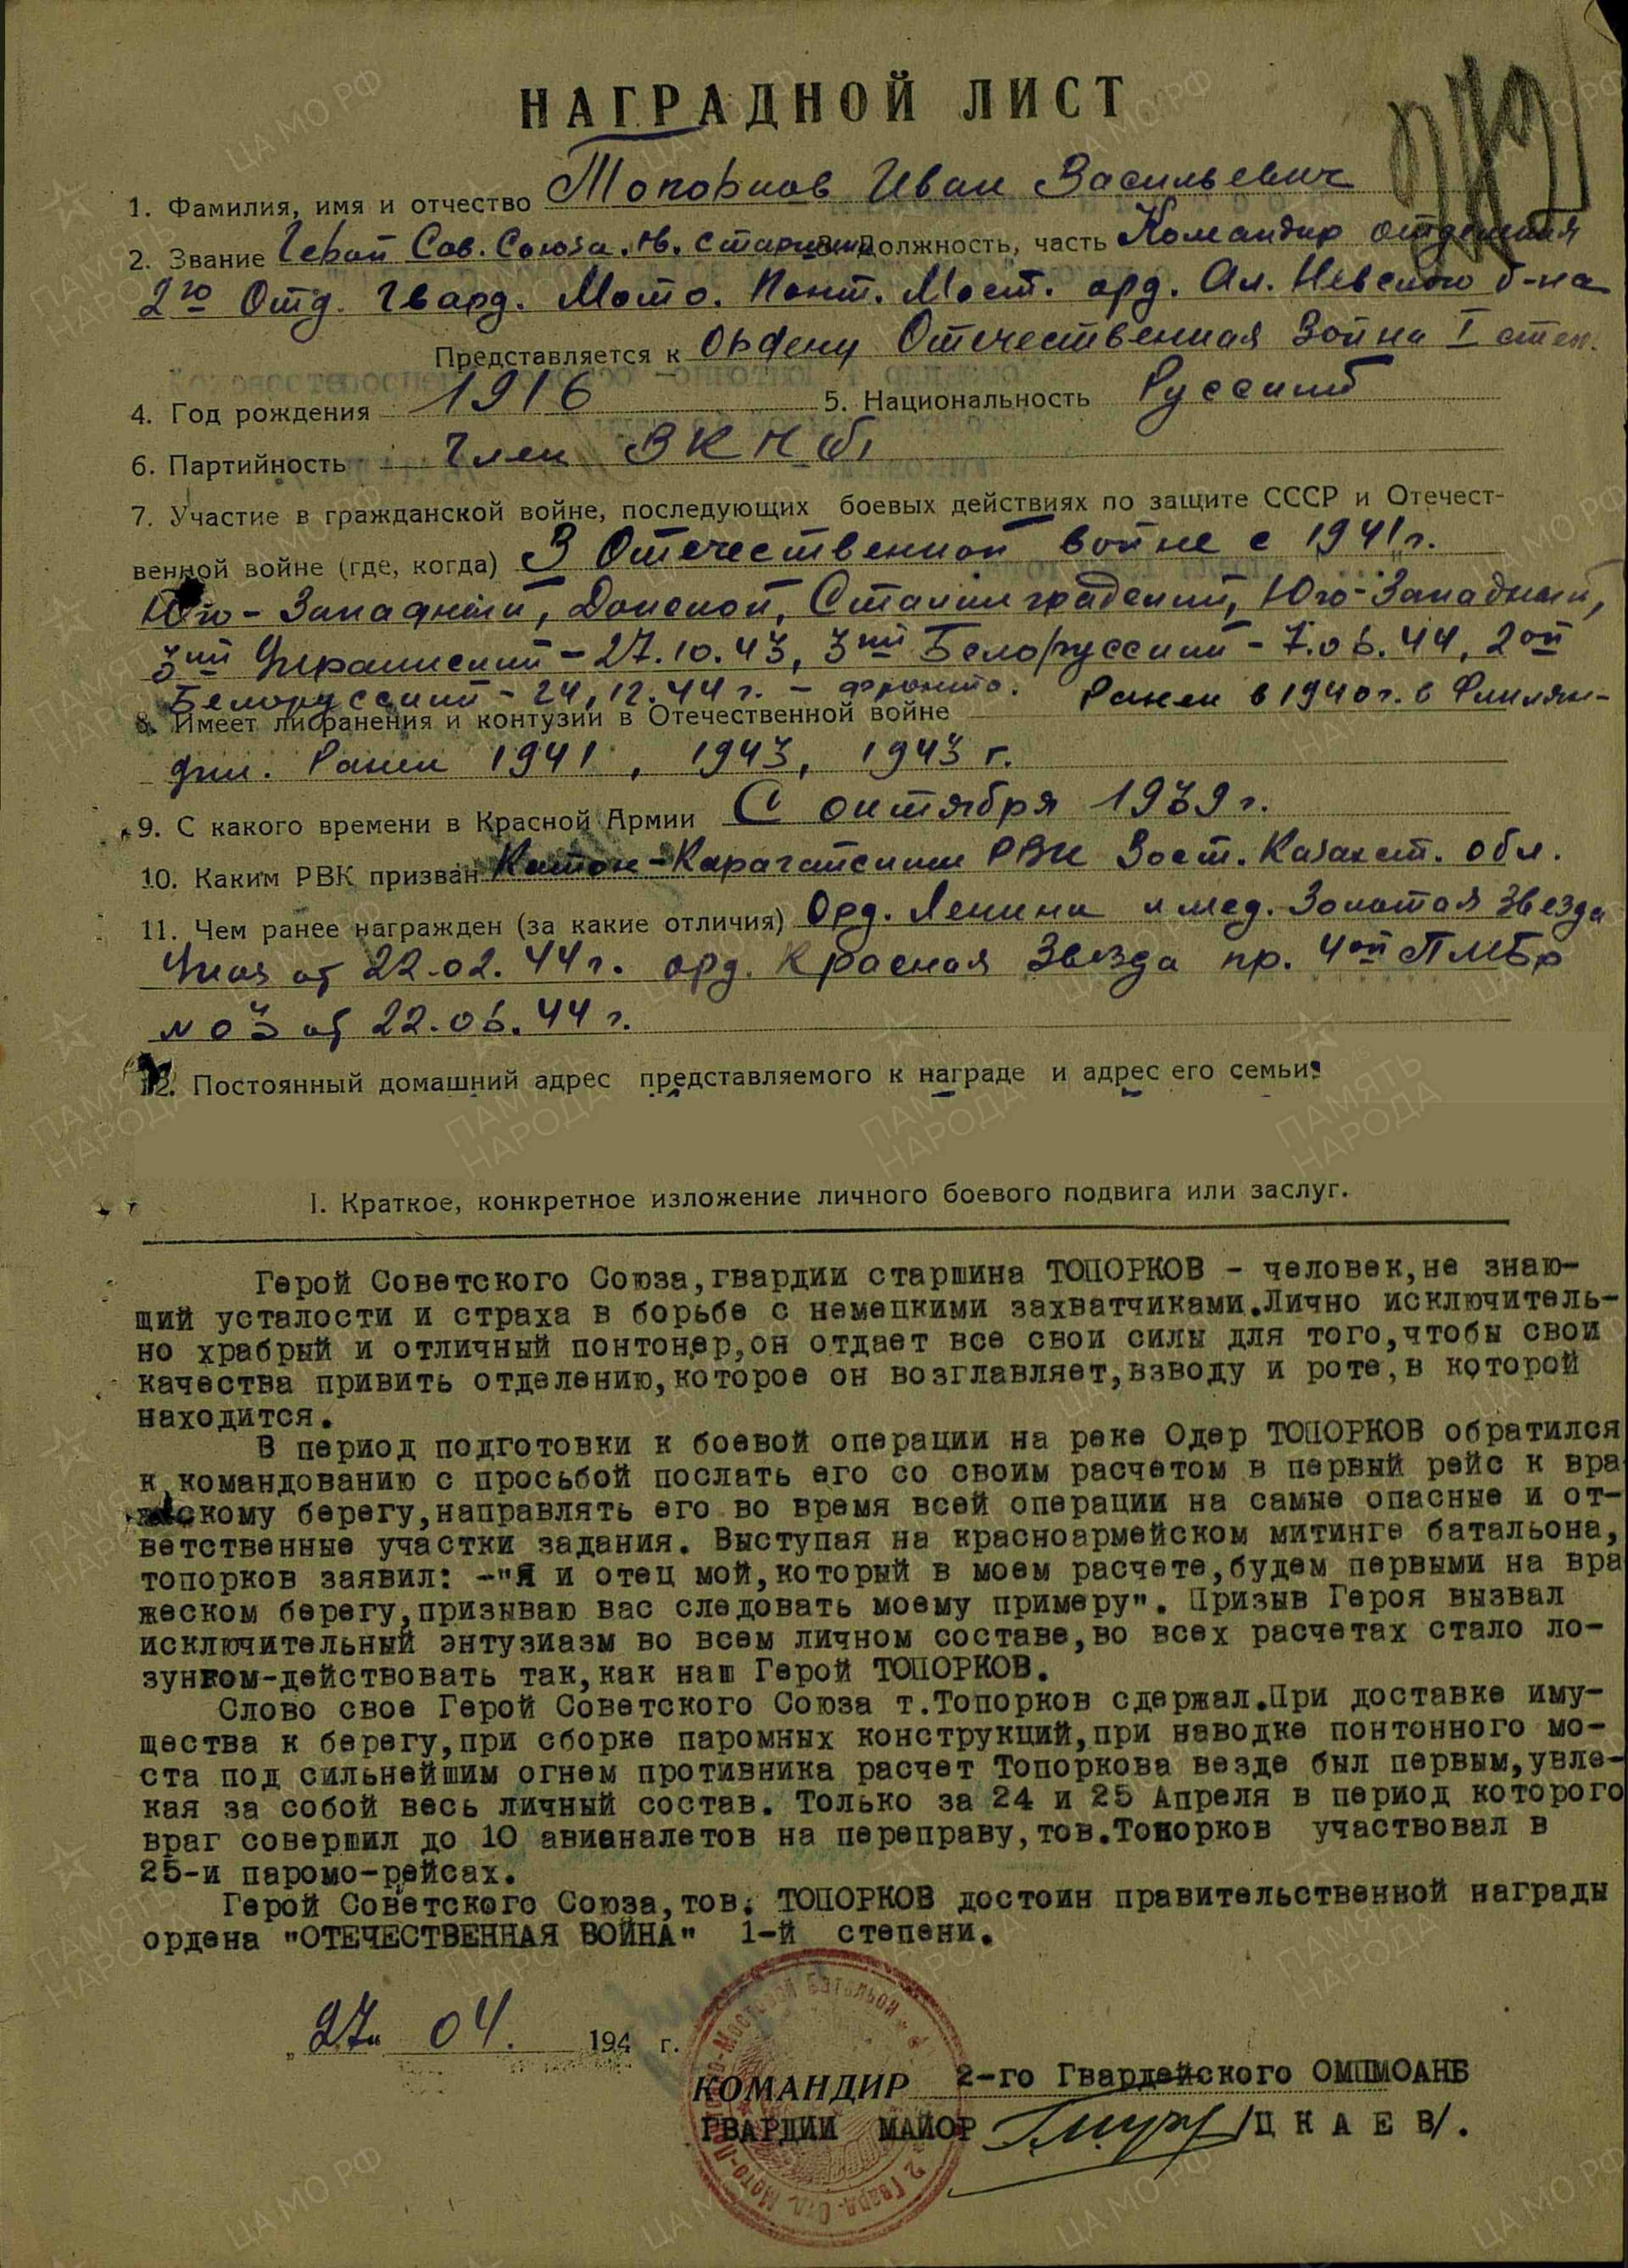 НАГРАДНОЙ ЛИСТ
1. Фамилия, имя и отчество Топорков Иван Васильевич
2. Звание Герой Сов. Союза. гв. старшина 3. Должность, часть Командир отделения
2го Отд. Гвард. Мото. Понт. Мост. орд. Ал. Невского б-на
Представляется к Ордену Отечественная Война I степ.
4. Год рождения 1916 5. Национальность Русский
6. Партийность Член ВКП(б)
7. Участие в гражданской войне, последующих боевых действиях по защите СССР и Отечест-
венной войне (где, когда) В Отечественной войне с 1941 г.
Юго-Западный, Донской, Сталинградский, Юго-Западный,
3ий Украинский - 27.10.43, 3ий Белорусский - 7.06.44, 2ой
Белорусский - 24.12.44 г. - фронта.
8. Имеет ли ранения и контузии в Отечественной войне Ранен в 1940 г. в Финлян-
дии. Ранен 1941, 1943, 1943 г.
9. С какого времени в Красной Армии С октября 1939 г.
10. Каким РВК призван Катон-Карагайским РВК Вост. Казахст. обл.
11. Чем ранее награжден (за какие отличия) Орд. Ленина и мед. Золотая Звезда
Указ от 22.02.44 г. орд. Красная Звезда пр. 4ой ПМБр
№ 03 от 22.06.44 г.
12. Постоянный домашний адрес представляемого к награде и адрес его семьи:
I. Краткое, конкретное изложение личного боевого подвига или заслуг.
Герой Советского Союза,гвардии старшина ТОПОРКОВ - человек,не знаю-
щий усталости и страха в борьбе с немецкими захватчиками.Лично исключитель-
но храбрый и отличный понтонер,он отдает все свои силы для того,чтобы свои
качества привить отделению,которое он возглавляет,взводу и роте,в которой
находится.
В период подготовки к боевой операции на реке Одер ТОПОРКОВ обратился
к командованию с просьбой послать его со своим расчетом в первый рейс к вра
жескому берегу,направлять его во время всей операции на самые опасные и от-
ветственные участки задания. Выступая на красноармейском митинге батальона,
топорков заявил: -"Я и отец мой,который в моем расчете,будем первыми на вра
жеском берегу,призываю вас следовать моему примеру". Призыв Героя вызвал
исключительный энтузиазм во всем личном составе,во всех расчетах стало ло-
зунком-действовать так,как наш Герой ТОПОРКОВ.
Слово свое Герой Советского Союза т.Топорков сдержал.При доставке иму-
щества к берегу,при сборке паромных конструкций,при наводке понтонного мо-
ста под сильнейшим огнем противника расчет Топоркова везде был первым,увле-
кая за собой весь личный состав. Только за 24 и 25 Апреля в период которого
враг совершил до 10 авианалетов на переправу,тов.Топорков участвовал в
25-и паромо-рейсах.
Герой Советского Союза,тов. ТОПОРКОВ достоин правительственной награды
ордена "ОТЕЧЕСТВЕННАЯ ВОЙНА" 1-й степени.
„27" 04. 194 г.
КОМАНДИР 2-го Гвардейского ОМПМОАНБ
ГВАРДИИ МАЙОР /ЦКАЕВ/.